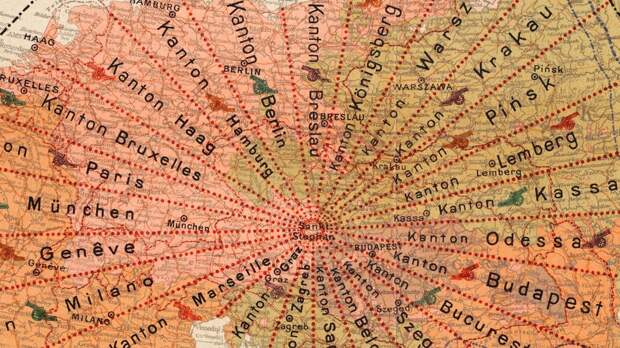 HAMBURG
HAAG
BRUXELLES
BERLIN
BRESLAU
WARSZAWA
Pińsk
Krakau
Lemberg
Kassa
München
Genêve
MILANO
Graz
Zagreb
BUDAPEST
Szeged
Sankt
Stephan
Kanton Bruxelles
Kanton Haag
Kanton Hamburg
Kanton Berlin
Kanton Breslau
Kanton Königsberg
Kanton Warsz
Kanton Krakau
Kanton Pińsk
Kanton Lemberg
Kanton Kassa
Kanton Odessa
Kanton Budapest
Kanton Bucurest
Kanton Szeg
Kanton Bel
Kanton Sar
Kanton Zagreb
Kanton Graz
Kanton Marseille
Milano
Genêve
München
Paris